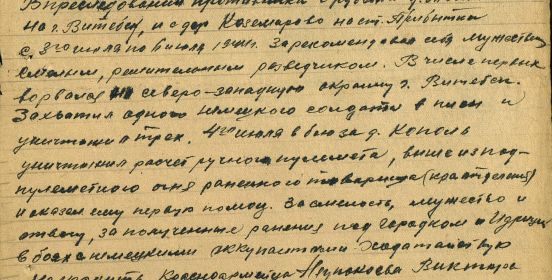 В преследовании противника с рубежа
на г. Витебск, и с дер Казимирово на ст. Прибытки
с 3го июля по 6 июля 1944 г. Зарекомендовал себя мужествен
смелым, решительным разведчиком. В числе первых
ворвался на северо-западную окраину г. Витебск.
Захватил одного немецкого солдата в плен и
уничтожил трех. 4го июля в бою за д. Кополь
уничтожил расчет ручного пулемета, вынес из под-
пулеметного огня раненного товарища (кра отделения)
и оказал ему первую помощ. За смелость, мужество и
отвагу, за полученные ранения под Городком и Идрицей
в боях с немецкими оккупантами Ходатайствую
наградить Красноармейца Виктора